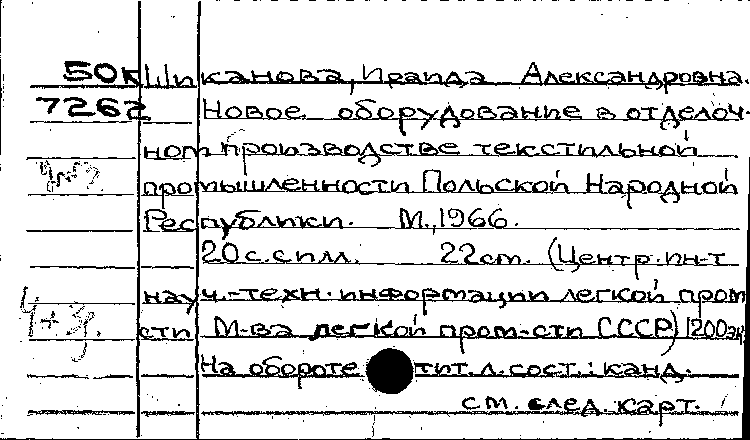 50к Шиканова, Ираида Александровна.
7262 Новое оборудование в отделоч-
ном производстве текстильной
промышленности Польской Народной
Республики. М., 1966.
20 с. с илл. 22 см. (Центр. ин-т
науч.-техн. информации легкой пром
сти М-ва легкой пром-сти СССР) 1200 эк
На обороте тит. л. сост.: канд.
см. след. карт.